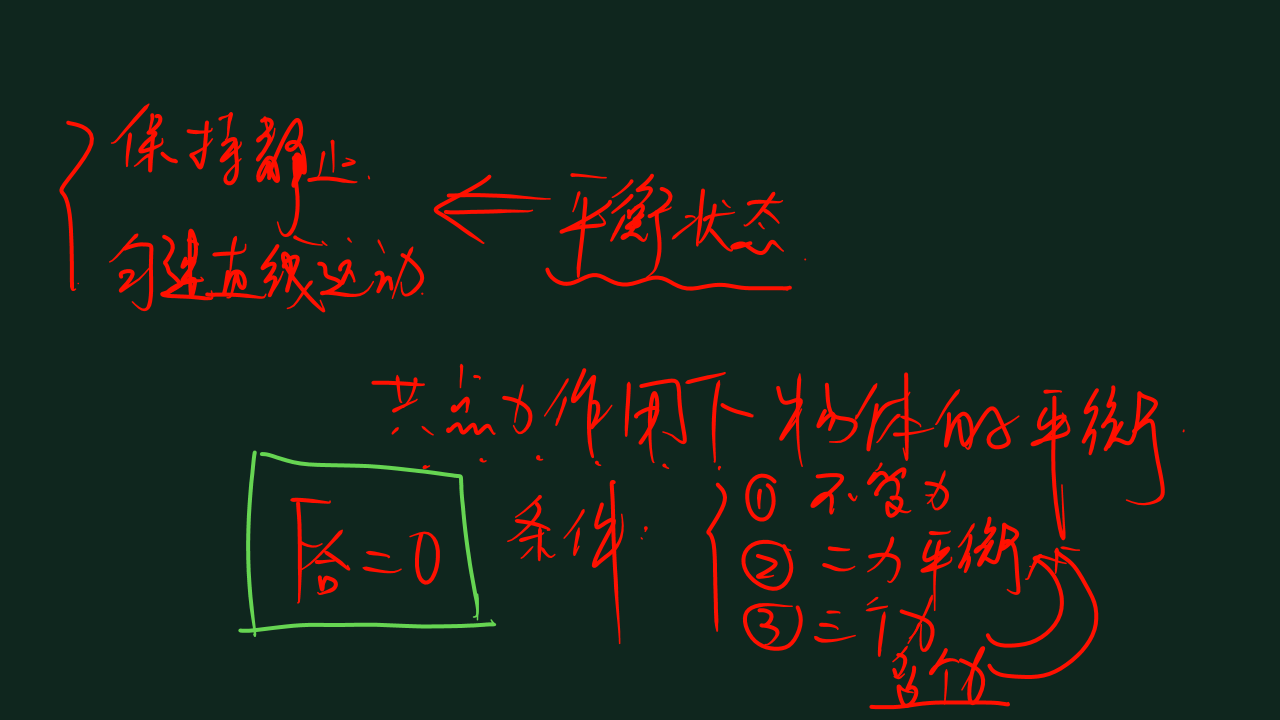 保持静止.
匀速直线运动.
平衡状态.
共点力作用下物体的平衡.
F合=0
条件:
① 不受力
② 二力平衡
③ 三个力
多个力